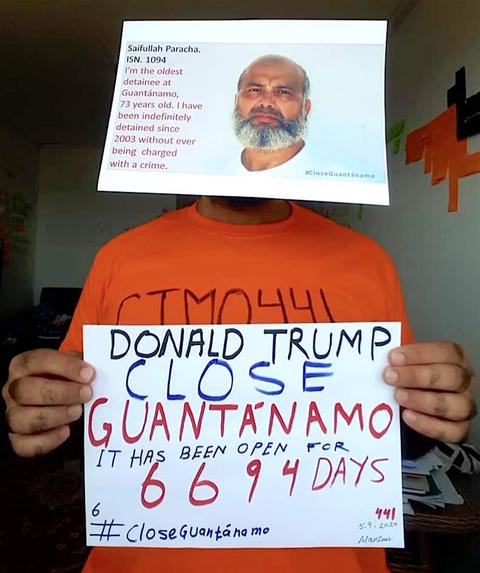 Saifullah Paracha.
ISN. 1094
I'm the oldest
detainee at
Guantánamo,
73 years old. I have
been indefinitely
detained since
2003 without ever
being charged
with a crime.
#CloseGuantánamo
GTMO441
DONALD TRUMP
CLOSE
GUANTÁNAMO
IT HAS BEEN OPEN FOR
6694 DAYS
6
441
5.9.2020
#CloseGuantánamo